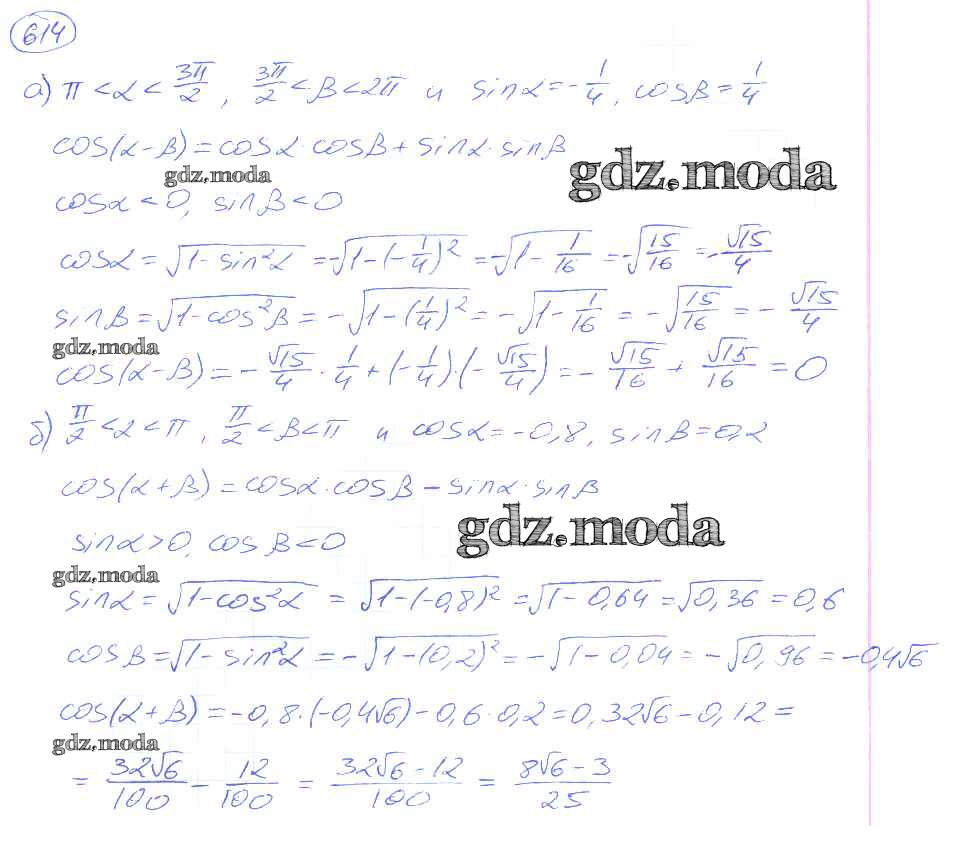 614
а) π < α < 3π/2, 3π/2 < β < 2π и sinα = -1/4, cosβ = 1/4
cos(α - β) = cosα · cosβ + sinα · sinβ
gdz.moda
gdz.moda
cosα < 0, sinβ < 0
cosα = √(1 - sin²α) = -√(1 - (-1/4)²) = -√(1 - 1/16) = -√(15/16) = -√15/4
sinβ = √(1 - cos²β) = -√(1 - (1/4)²) = -√(1 - 1/16) = -√(15/16) = -√15/4
gdz.moda
cos(α - β) = -√15/4 · 1/4 + (-1/4) · (-√15/4) = -√15/16 + √15/16 = 0
б) π/2 < α < π, π/2 < β < π и cosα = -0,8, sinβ = 0,2
cos(α + β) = cosα · cosβ - sinα · sinβ
gdz.moda
sinα > 0, cosβ < 0
gdz.moda
sinα = √(1 - cos²α) = √(1 - (-0,8)²) = √(1 - 0,64) = √0,36 = 0,6
cosβ = √(1 - sin²α) = -√(1 - (0,2)²) = -√(1 - 0,04) = -√0,96 = -0,4√6
cos(α + β) = -0,8 · (-0,4√6) - 0,6 · 0,2 = 0,32√6 - 0,12 =
gdz.moda
= 32√6/100 - 12/100 = (32√6 - 12)/100 = (8√6 - 3)/25